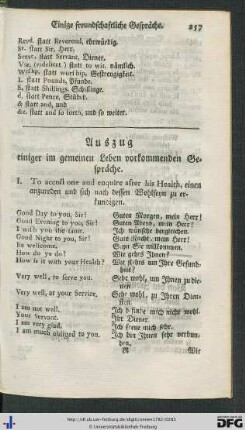 Einige freundschaftliche Gespräche. 257
Revd. statt Reverend, ehrwürdig.
Sr. statt Sir, Herr.
Servt. statt Servant, Diener.
Viz. (videlicet) statt to wit, nämlich.
Worship, Gestrengigkeit.
L. statt Pounds, Pfunde.
S. statt Shillings, Schillinge.
d. statt Pence, Stüber.
& statt and, und
&c. statt and so forth, und so weiter.
Auszug
einiger im gemeinen Leben vorkommenden Ge-
spräche.
I. To accost one and enquire after his Health, einen
anzureden und sich nach dessen Wohlseyn zu er-
kundigen.
Good Day to you, Sir! Guten Morgen, mein Herr!
Good Evening to you, Sir! Guten Abend, mein Herr!
I wish you the same. Ich wünsche dergleichen.
Good Night to you, Sir! Gute Nacht, mein Herr!
Be welcome. Seyn Sie willkommen.
How do ye do? Wie gehts Ihnen?
How is it with your Health? Wie stehts um Ihre Gesund-
heit?
Very well, to serve you. Sehr wohl, um Ihnen zu die-
nen.
Very well, at your Service. Sehr wohl, zu Ihren Dien-
sten.
I am not well. Ich befinde mich nicht wohl.
Your Servant. Ihr Diener.
I am very glad. Ich freue mich sehr.
I am much obliged to you. Ich bin Ihnen sehr verbun-
den.
R Wie
© Universitätsbibliothek Freiburg
gefördert durch
DFG